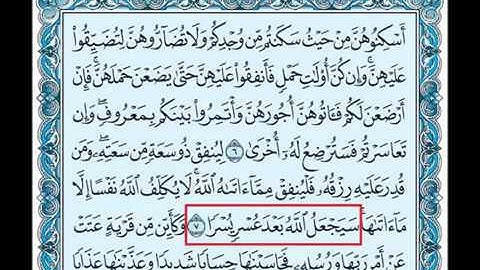 أَسْكِنُوهُنَّ مِنْ حَيْثُ سَكَنتُم مِّن وُجْدِكُمْ وَلَا تُضَآرُّوهُنَّ لِتُضَيِّقُوا۟
عَلَيْهِنَّ ۚ وَإِن كُنَّ أُو۟لَٰتِ حَمْلٍ فَأَنفِقُوا۟ عَلَيْهِنَّ حَتَّىٰ يَضَعْنَ حَمْلَهُنَّ ۚ فَإِنْ
أَرْضَعْنَ لَكُمْ فَـَٔاتُوهُنَّ أُجُورَهُنَّ ۖ وَأْتَمِرُوا۟ بَيْنَكُم بِمَعْرُوفٍ ۖ وَإِن
تَعَاسَرْتُمْ فَسَتُرْضِعُ لَهُۥٓ أُخْرَىٰ ۝٦ لِيُنفِقْ ذُو سَعَةٍ مِّن سَعَتِهِۦ ۖ وَمَن
قُدِرَ عَلَيْهِ رِزْقُهُۥ فَلْيُنفِقْ مِمَّآ ءَاتَىٰهُ ٱللَّهُ ۚ لَا يُكَلِّفُ ٱللَّهُ نَفْسًا إِلَّا
مَآ ءَاتَىٰهَا ۚ سَيَجْعَلُ ٱللَّهُ بَعْدَ عُسْرٍ يُسْرًا ۝٧ وَكَأَيِّن مِّن قَرْيَةٍ عَتَتْ
عَنْ أَمْرِ رَبِّهَا وَرُسُلِهِۦ فَحَاسَبْنَٰهَا حِسَابًا شَدِيدًا وَعَذَّبْنَٰهَا عَذَابًا